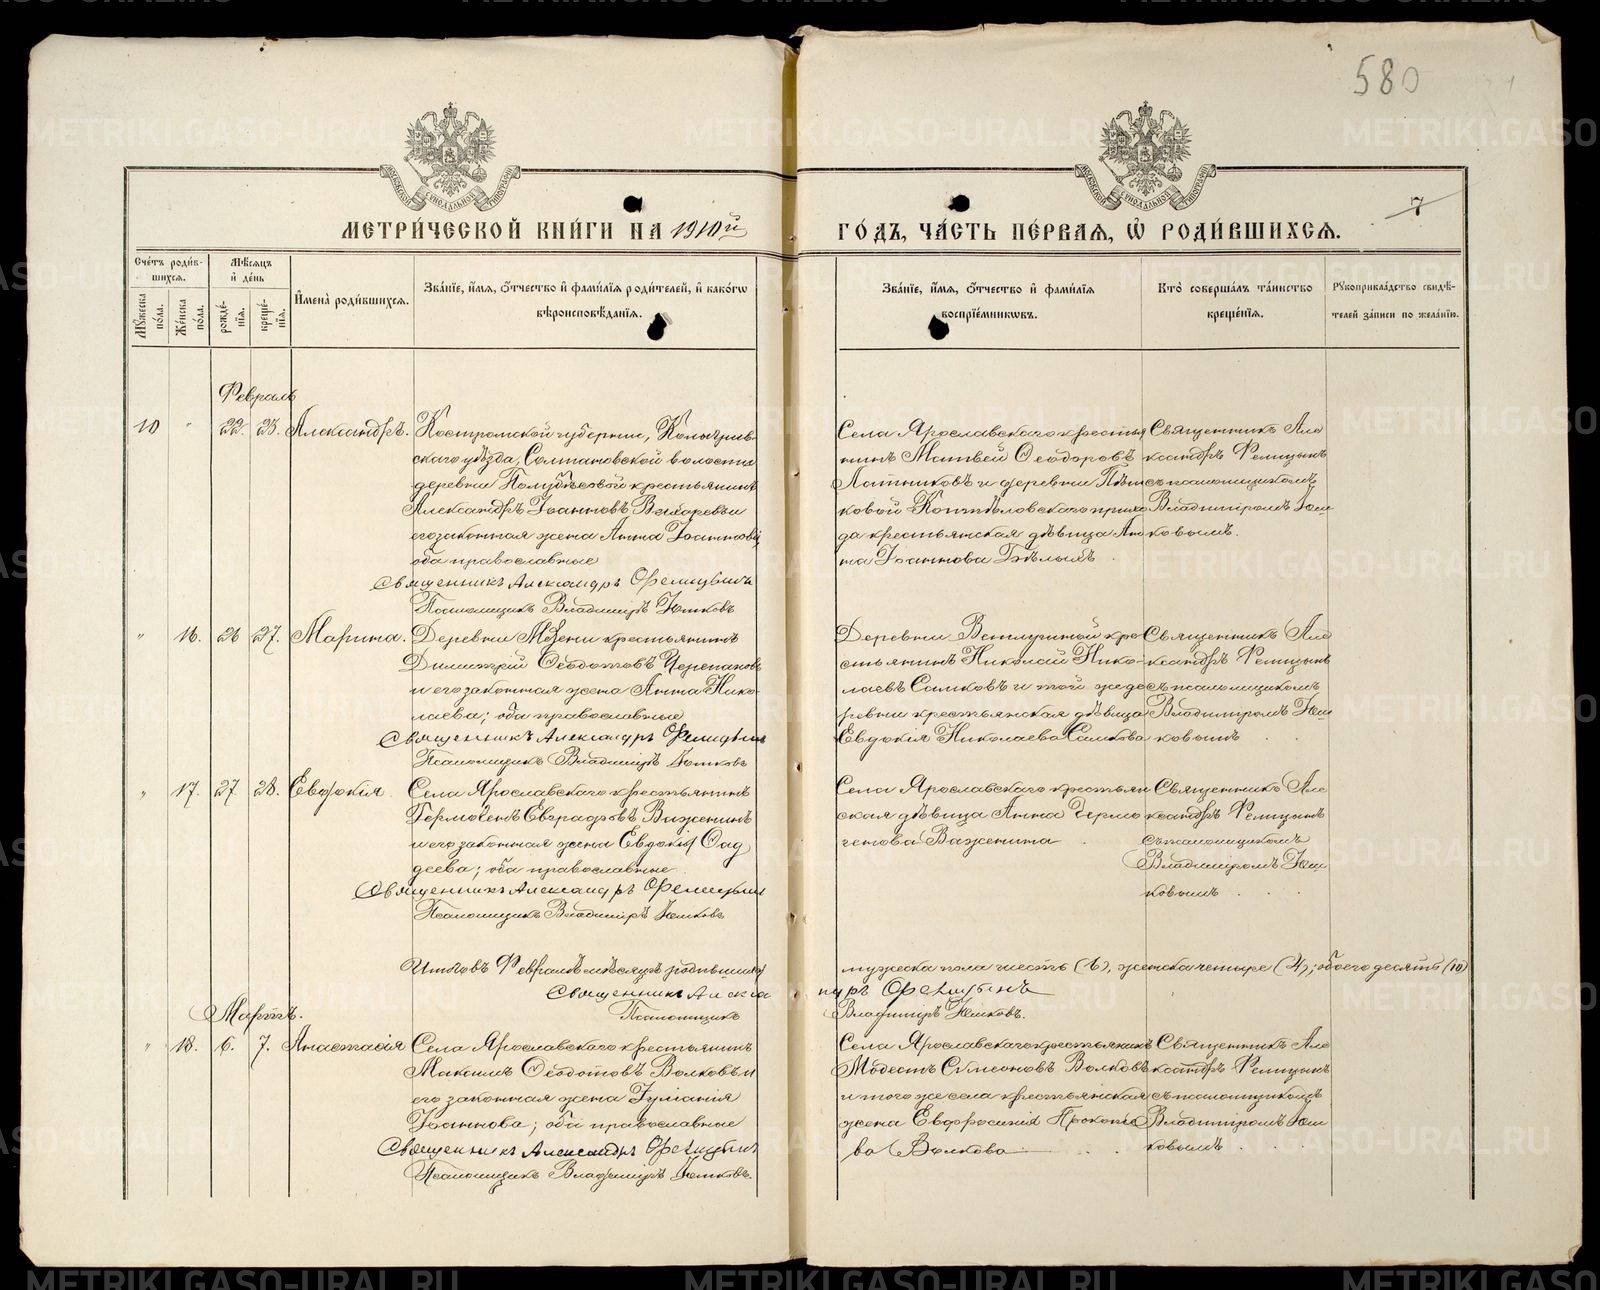 580
7
МЕТРИ́ЧЕСКОЙ КНИ́ГИ НА 1910й
ГО́ДЪ, ЧА́СТЬ ПЕ́РВАЯ, Ѡ҆ РОДИ́ВШИХСЯ.
Сче́тъ роди́в-
шихся.
Мѣ́сяцъ
и҆ де́нь
Мꙋ́жеска по́ла.
Же́нска по́ла.
рожде́-
нїя.
креще́-
нїя.
И҆мена̀ роди́вшихся.
Зва́нїе, и҆́мя, ѻ҆́тчество и҆ фами́лїя роди́телей, и҆ како́гѡ
вѣроисповѣ́данїя.
Зва́нїе, и҆́мя, ѻ҆́тчество и҆ фами́лїя
воспрїе́мникѡвъ.
Кто̀ соверша́лъ та́инство
креще́нїя.
Рꙋкоприкла́дство свидѣ́-
телей за́писи по жела́нїю.
Февраль
10 " 22. 23. Александръ.
Костромской губернии, Кологрив-
скаго уѣзда, Солтановской волости
деревни крестьянинъ
Александръ Іоанновъ и
его законная жена Анна Іоаннова,
оба православные
Священникъ Александръ Ѳелицынъ
Псаломщикъ Владиміръ Юшковъ
Села Ярославскаго крестья
нинъ Матвей Ѳеодоровъ
Латниковъ и деревни
ковой прихо
да крестьянская дѣвица Ан
на Іоаннова Бѣлыхъ
Священникъ Але
ксандръ Фелицынъ
съ псаломщикомъ
Владиміромъ Юш
ковымъ.
" 16. 26 27. Марина.
Деревни Мѣзени крестьянинъ
Димитрій Ѳеодотовъ Черепановъ
и его законная жена Анна Нико-
лаева; оба православные
Священникъ Александръ Ѳелицынъ
Псаломщикъ Владиміръ Юшковъ
Деревни Ветлугиной кре
стьянинъ Николай Нико-
лаевъ Самковъ и той же де
ревни крестьянская дѣвица
Евдокія Николаева Самкова
Священникъ Але
ксандръ Фелицынъ
съ псаломщикомъ
Владиміромъ Юш
ковымъ
" 17. 27 28. Евдокія
Села Ярославскаго крестьянинъ
Гермогенъ Евграфовъ Важенинъ
и его законная жена Евдокія Ѳад
деева; оба православные
Священникъ Александръ Ѳелицынъ
Псаломщикъ Владиміръ Юшковъ
Села Ярославскаго крестьян
ская дѣвица Анна Гермо
генова Важенина
Священникъ Але
ксандръ Фелицынъ
съ псаломщикомъ
Владиміромъ Юш
ковымъ
Итого въ Февралѣ мѣсяцѣ родившихся мужска пола шесть (6), женска четыре (4); обоего десять (10)
Священникъ Александръ Ѳелицынъ
Псаломщикъ Владиміръ Юшковъ.
Мартъ.
" 18. 6. 7. Анастасія
Села Ярославскаго крестьянинъ
Максимъ Ѳеодотовъ Волковъ и
его законная жена Іуліанія
Іоаннова; оба православные
Священникъ Александръ Ѳелицынъ
Псаломщикъ Владиміръ Юшковъ.
Села Ярославскаго крестьянинъ
Модестъ Симеоновъ Волковъ
и того же села крестьянская
жена Евфросинія Прокопіе
ва Волкова
Священникъ Але
ксандръ Фелицынъ
съ псаломщикомъ
Владиміромъ Юш
ковымъ
METRIKI.GASO-URAL.RU